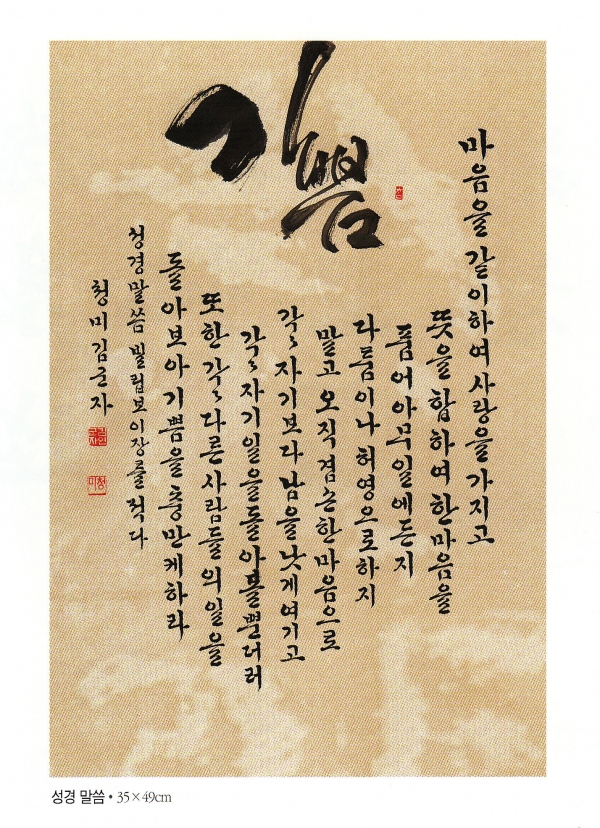 기쁨
마음을 같이하여 사랑을 가지고
뜻을 합하여 한마음을
품어 아무일에든지
다툼이나 허영으로 하지
말고 오직 겸손한 마음으로
각각 자기보다 남을 낫게 여기고
각각 자기일을 돌아볼뿐더러
또한 각각 다른 사람들의 일을
돌아보아 기쁨을 충만케하라
성경말씀 빌립보이장를 적다
청미 김군자
성경 말씀 • 35×49cm